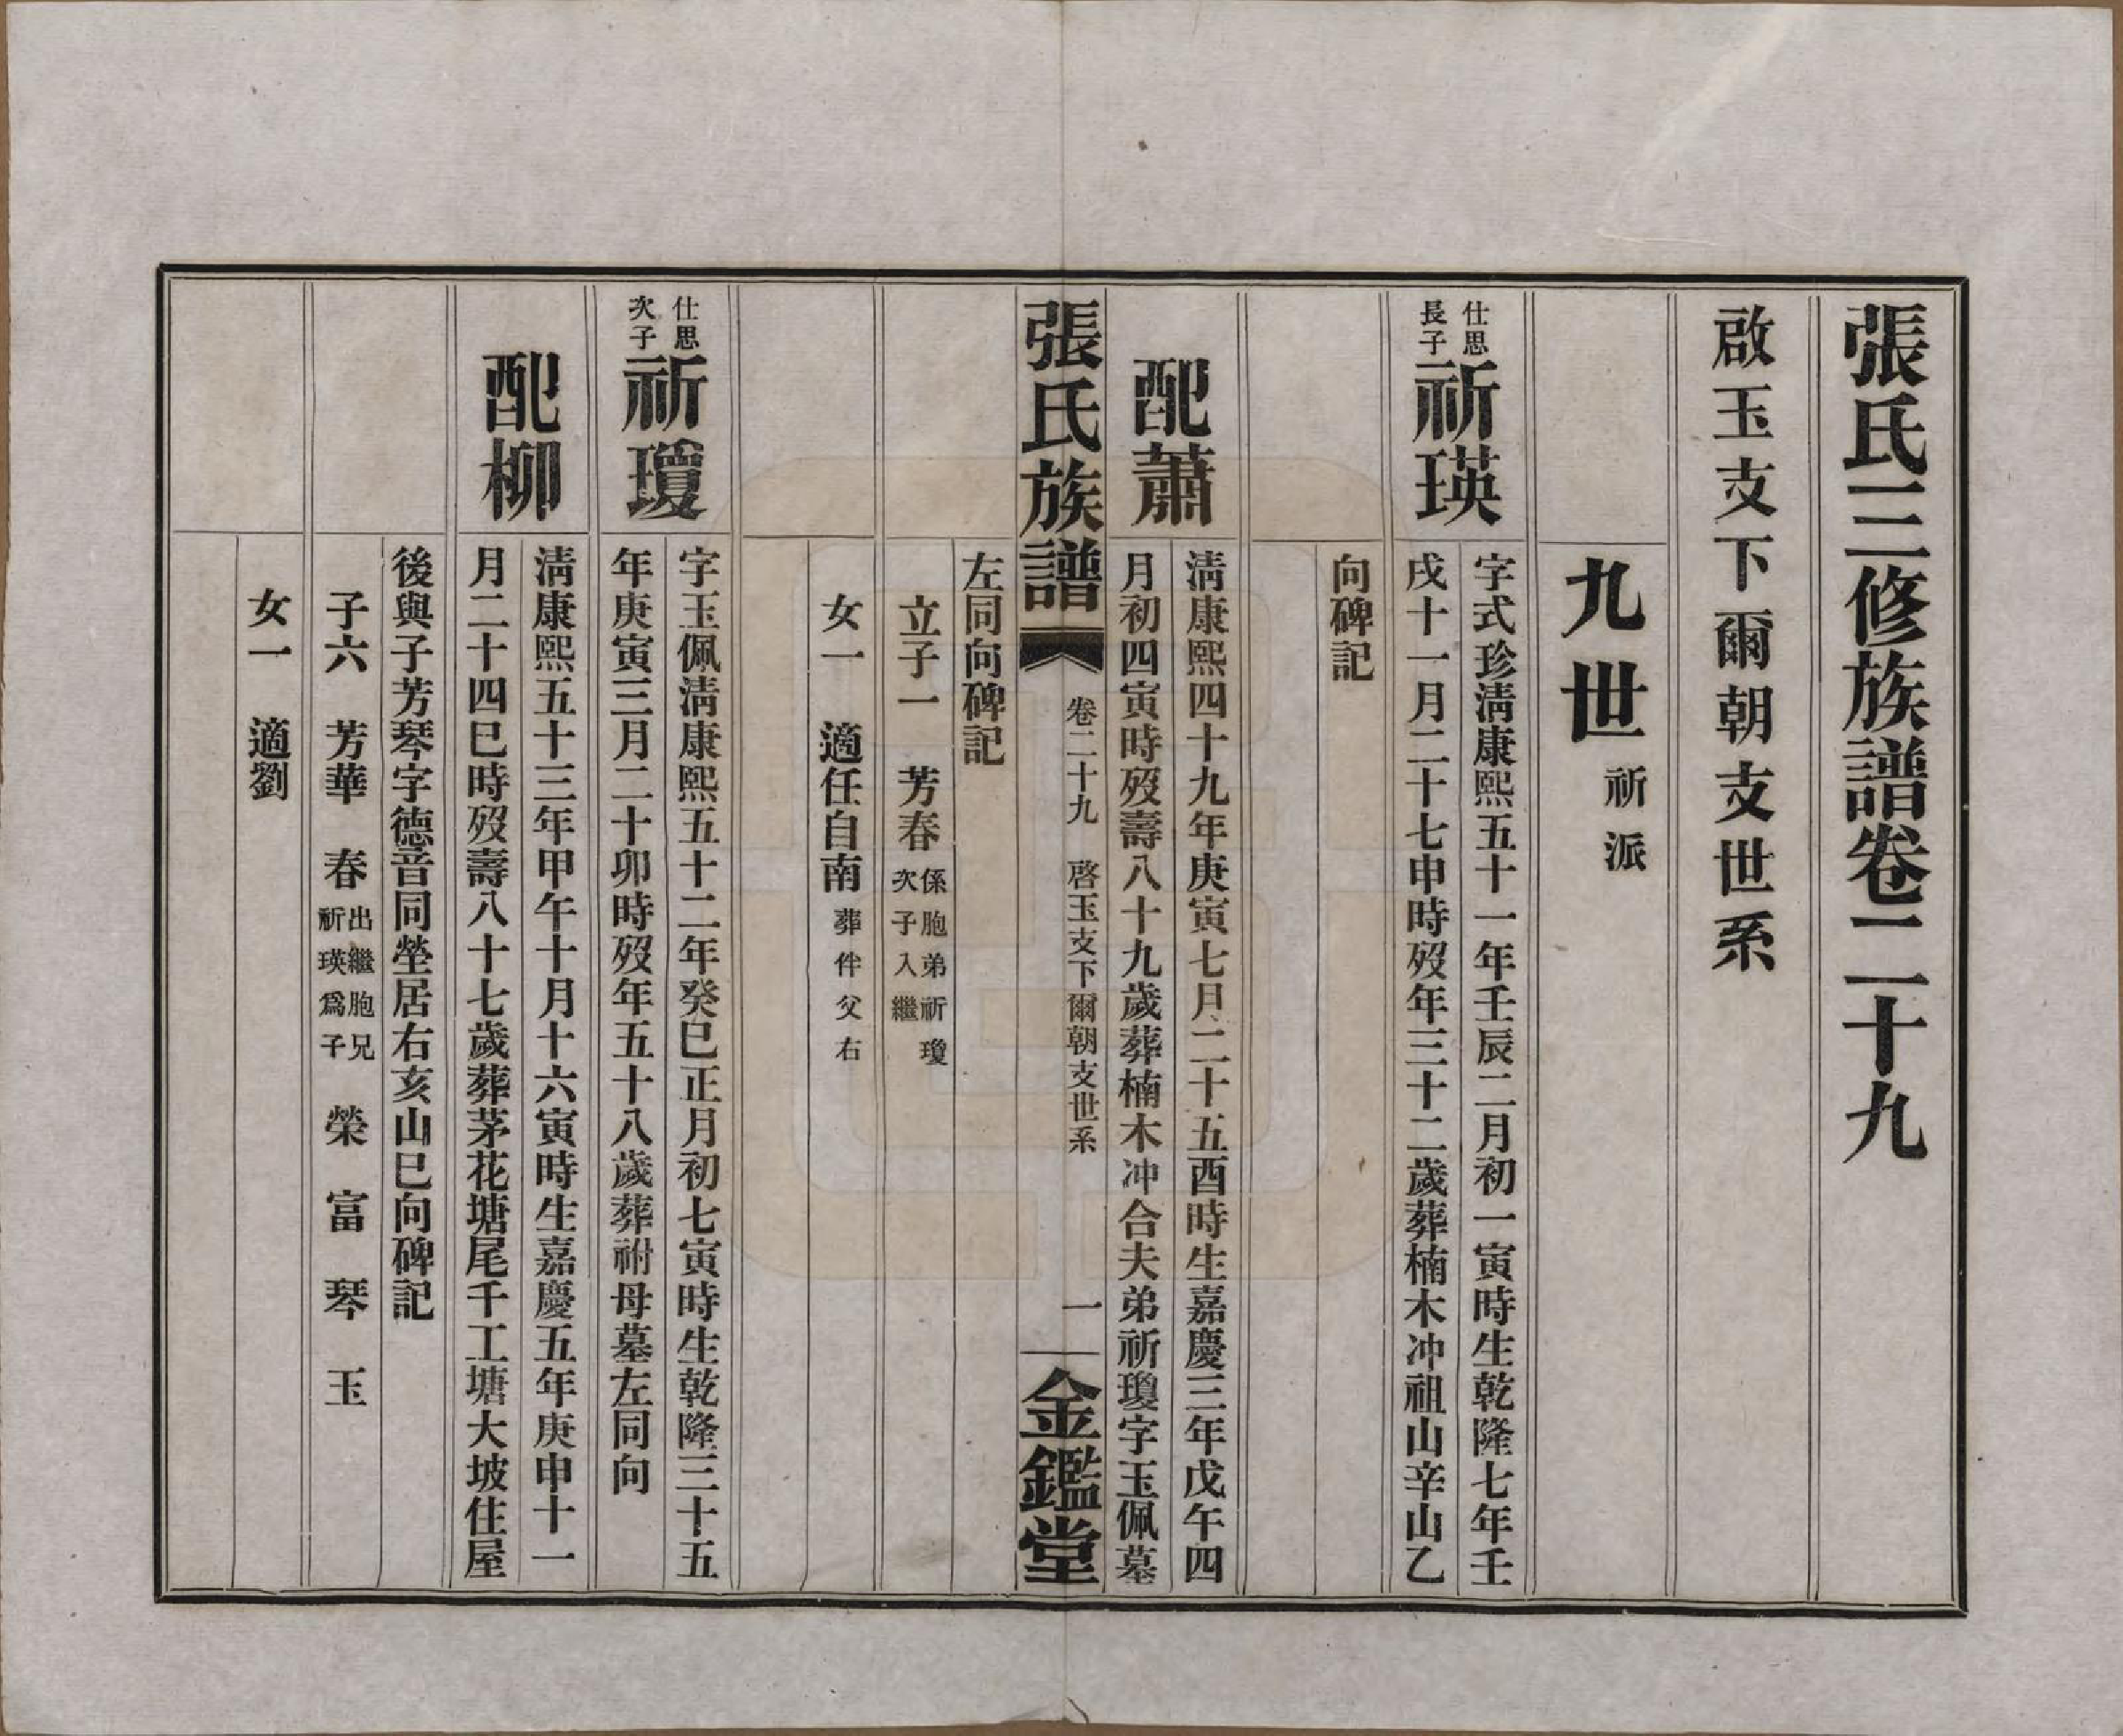 張氏三修族譜卷二十九
啟玉支下爾朝支世系
九世 祈派
仕思長子 祈瑛
字式珍淸康熙五十一年壬辰二月初一寅時生乾隆七年壬
戌十一月二十七申時歿年三十二歲葬楠木冲祖山辛山乙
向碑記
配蕭
淸康熙四十九年庚寅七月二十五酉時生嘉慶三年戊午四
月初四寅時歿壽八十九歲葬楠木冲合夫弟祈瓊字玉佩墓
張氏族譜 卷二十九 啓玉支下爾朝支世系 一 金鑑堂
左同向碑記
立子一 芳春 係胞弟祈瓊次子入繼
女一 適任自南 葬伴父右
仕思次子 祈瓊
字玉佩淸康熙五十二年癸巳正月初七寅時生乾隆三十五
年庚寅三月二十卯時歿年五十八歲葬祔母墓左同向
配柳
淸康熙五十三年甲午十月十六寅時生嘉慶五年庚申十一
月二十四巳時歿壽八十七歲葬茅花塘尾千工塘大坡住屋
後與子芳琴字德音同塋居右亥山巳向碑記
子六 芳華 春 出繼胞兄祈瑛爲子 榮 富 琴 玉
女一 適劉